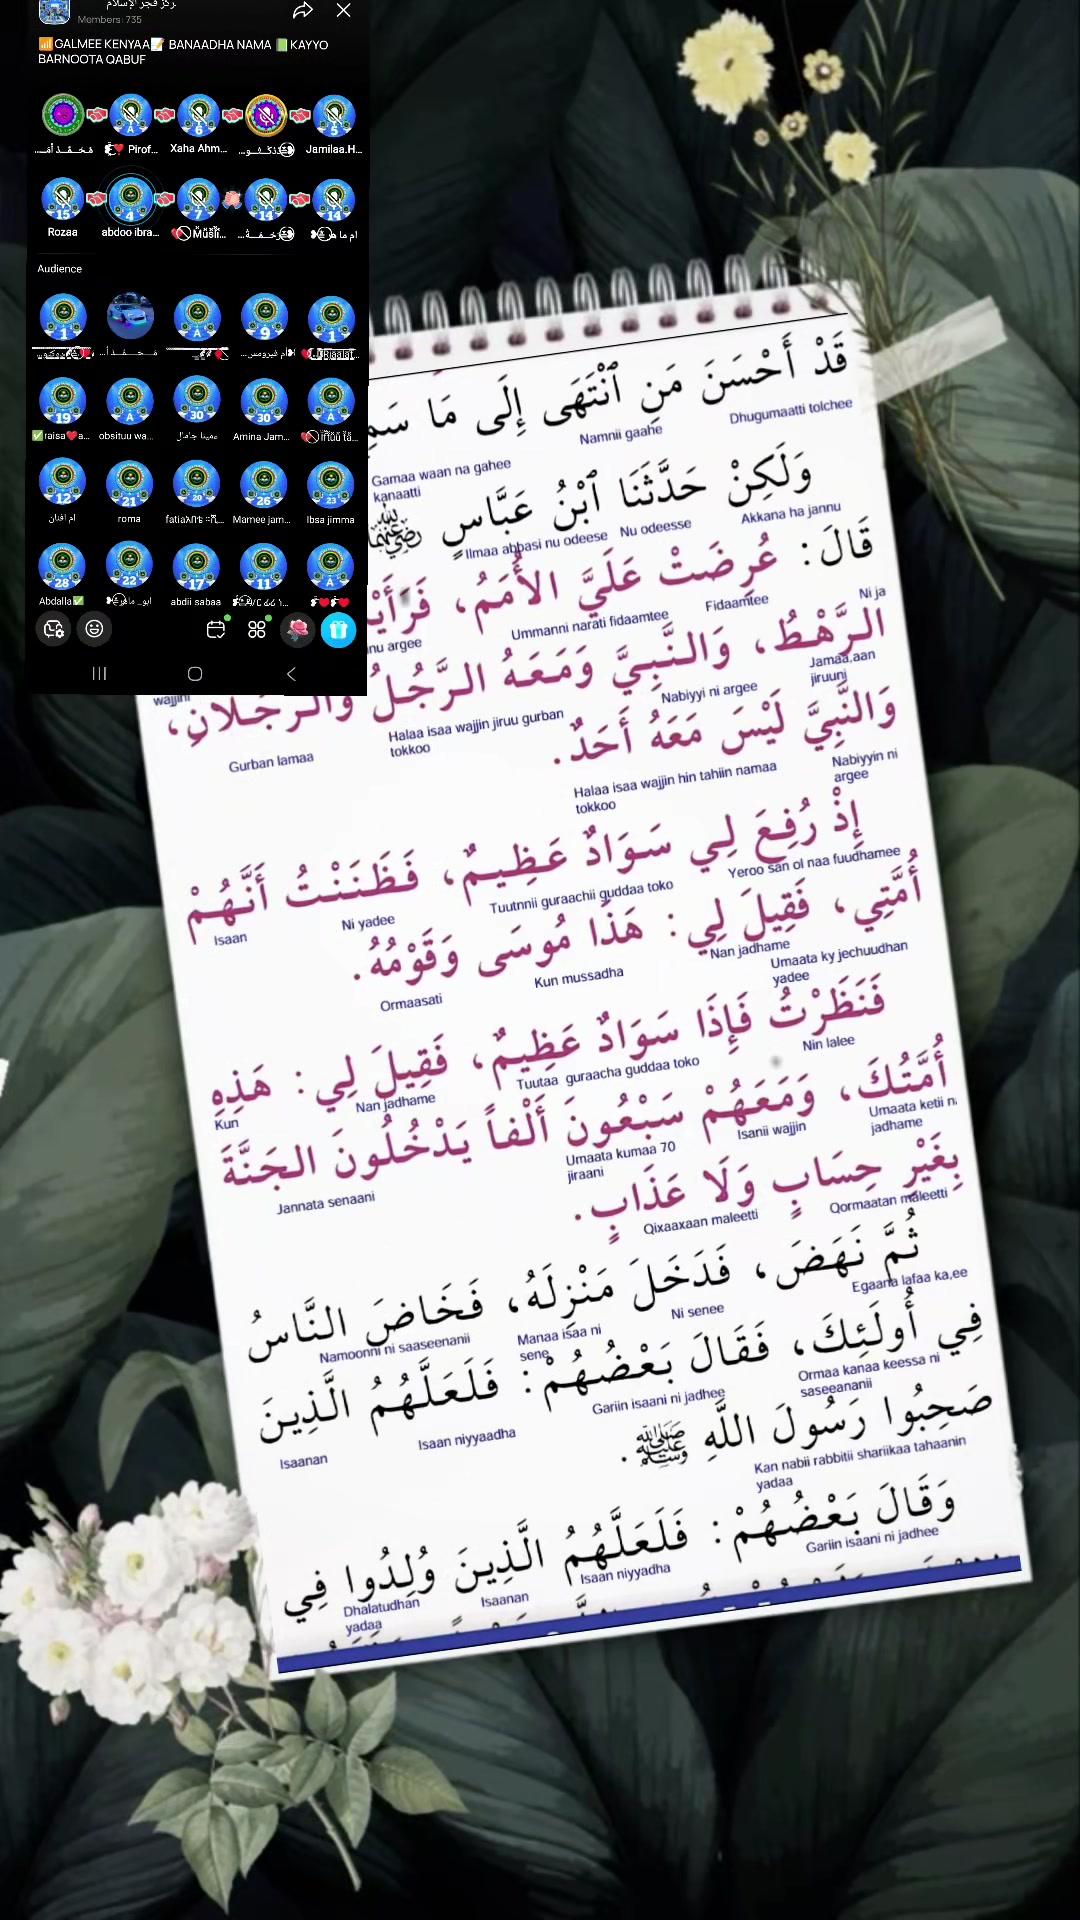 مركز فجر الإسلام
Members: 735
📶GALMEE KENYAA📝 BANAADHA NAMA 📗KAYYO
BARNOOTA QABUF
Pirof... Xaha Ahm... Jamilaa.H...
15 4 7 14 14
Rozaa abdoo ibra... ام ما هر
Audience
1 A 9 1
19 A 30 30 A
raisa❤️a... obsituu wa... Amina Jam...
12 21 20 26 23
ام افنان roma Mamee jam... Ibsa jimma
28 22 17 11 A
Abdalla✅ abdii sabaa
قَدْ أَحْسَنَ مَنِ ٱنْتَهَى إِلَى مَا
Dhugumaatti tolchee
Namnii gaahe
Gamaa waan na gahee
kanaatti
وَلَكِنْ حَدَّثَنَا ٱبْنُ عَبَّاسٍ رضي الله عنهما
Akkana ha jannu
Nu odeesse
Ilmaa abbasi nu odeese
قَالَ: عُرِضَتْ عَلَيَّ الأُمَمُ، فَرَأَيْ
Ni ja
Fidaamtee
Ummanni narati fidaamtee
nu argee
الرَّهْطُ، وَالنَّبِيَّ وَمَعَهُ الرَّجُلُ وَالرَّجُلَانِ،
Jamaa,aan
jiruuni
Nabiyyi ni argee
Halaa isaa wajjin jiruu gurban
tokkoo
Gurban lamaa
wajjini
وَالنَّبِيَّ لَيْسَ مَعَهُ أَحَدٌ.
Nabiyyin ni
argee
Halaa isaa wajjin hin tahiin namaa
tokkoo
إِذْ رُفِعَ لِي سَوَادٌ عَظِيمٌ، فَظَنَنْتُ أَنَّهُمْ
Yeroo san ol naa fuudhamee
Tuutnnii guraachii guddaa toko
Ni yadee
Isaan
أُمَّتِي، فَقِيلَ لِي: هَذَا مُوسَى وَقَوْمُهُ.
Umaata ky jechuudhan
yadee
Nan jadhame
Kun mussadha
Ormaasati
فَنَظَرْتُ فَإِذَا سَوَادٌ عَظِيمٌ، فَقِيلَ لِي: هَذِهِ
Nin lalee
Tuutaa guraacha guddaa toko
Nan jadhame
Kun
أُمَّتُكَ، وَمَعَهُمْ سَبْعُونَ أَلْفاً يَدْخُلُونَ الجَنَّةَ
Umaata ketii n
jadhame
Isanii wajjin
Umaata kumaa 70
jiraani
Jannata senaani
بِغَيْرِ حِسَابٍ وَلَا عَذَابٍ.
Qormaatan maleetti
Qixaaxaan maleetti
ثُمَّ نَهَضَ، فَدَخَلَ مَنْزِلَهُ، فَخَاضَ النَّاسُ
Egaana lafaa ka,ee
Ni senee
Manaa isaa ni
sene
Namoonni ni saaseenanii
فِي أُولَئِكَ، فَقَالَ بَعْضُهُمْ: فَلَعَلَّهُمُ الَّذِينَ
Ormaa kanaa keessa ni
saseeananii
Gariin isaani ni jadhee
Isaan niyyaadha
Isaanan
صَحِبُوا رَسُولَ اللَّهِ ﷺ.
Kan nabii rabbitii shariikaa tahaanin
yadaa
وَقَالَ بَعْضُهُمْ: فَلَعَلَّهُمُ الَّذِينَ وُلِدُوا فِي
Gariin isaani ni jadhee
Isaan niyyadha
Isaanan
Dhalatudhan
yadaa